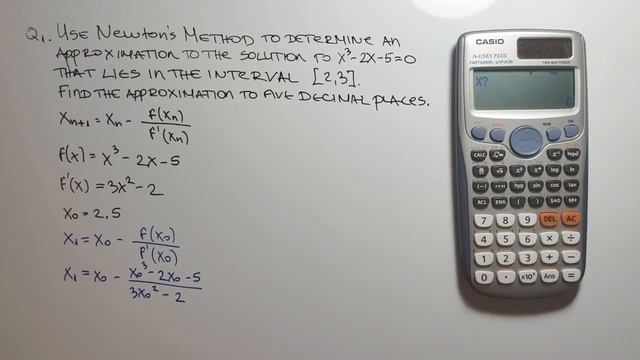 Q1. USE NEWTON'S METHOD TO DETERMINE AN
APPROXIMATION TO THE SOLUTION TO x³-2x-5=0
THAT LIES IN THE INTERVAL [2,3].
FIND THE APPROXIMATION TO FIVE DECIMAL PLACES.
xₙ₊₁ = xₙ - f(xₙ)/f'(xₙ)
f(x) = x³-2x-5
f'(x) = 3x²-2
x₀ = 2.5
x₁ = x₀ - f(x₀)/f'(x₀)
x₁ = x₀ - (x₀³-2x₀-5)/(3x₀²-2)
CASIO
fx-991ES PLUS
NATURAL-V.P.A.M.
TWO WAY POWER
X?
0
CALC
hyp sin cos tan
RCL ENG ( ) S⇔D M+
7 8 9 DEL AC
4 5 6 × ÷
1 2 3 + −
0 . ×10ˣ Ans =